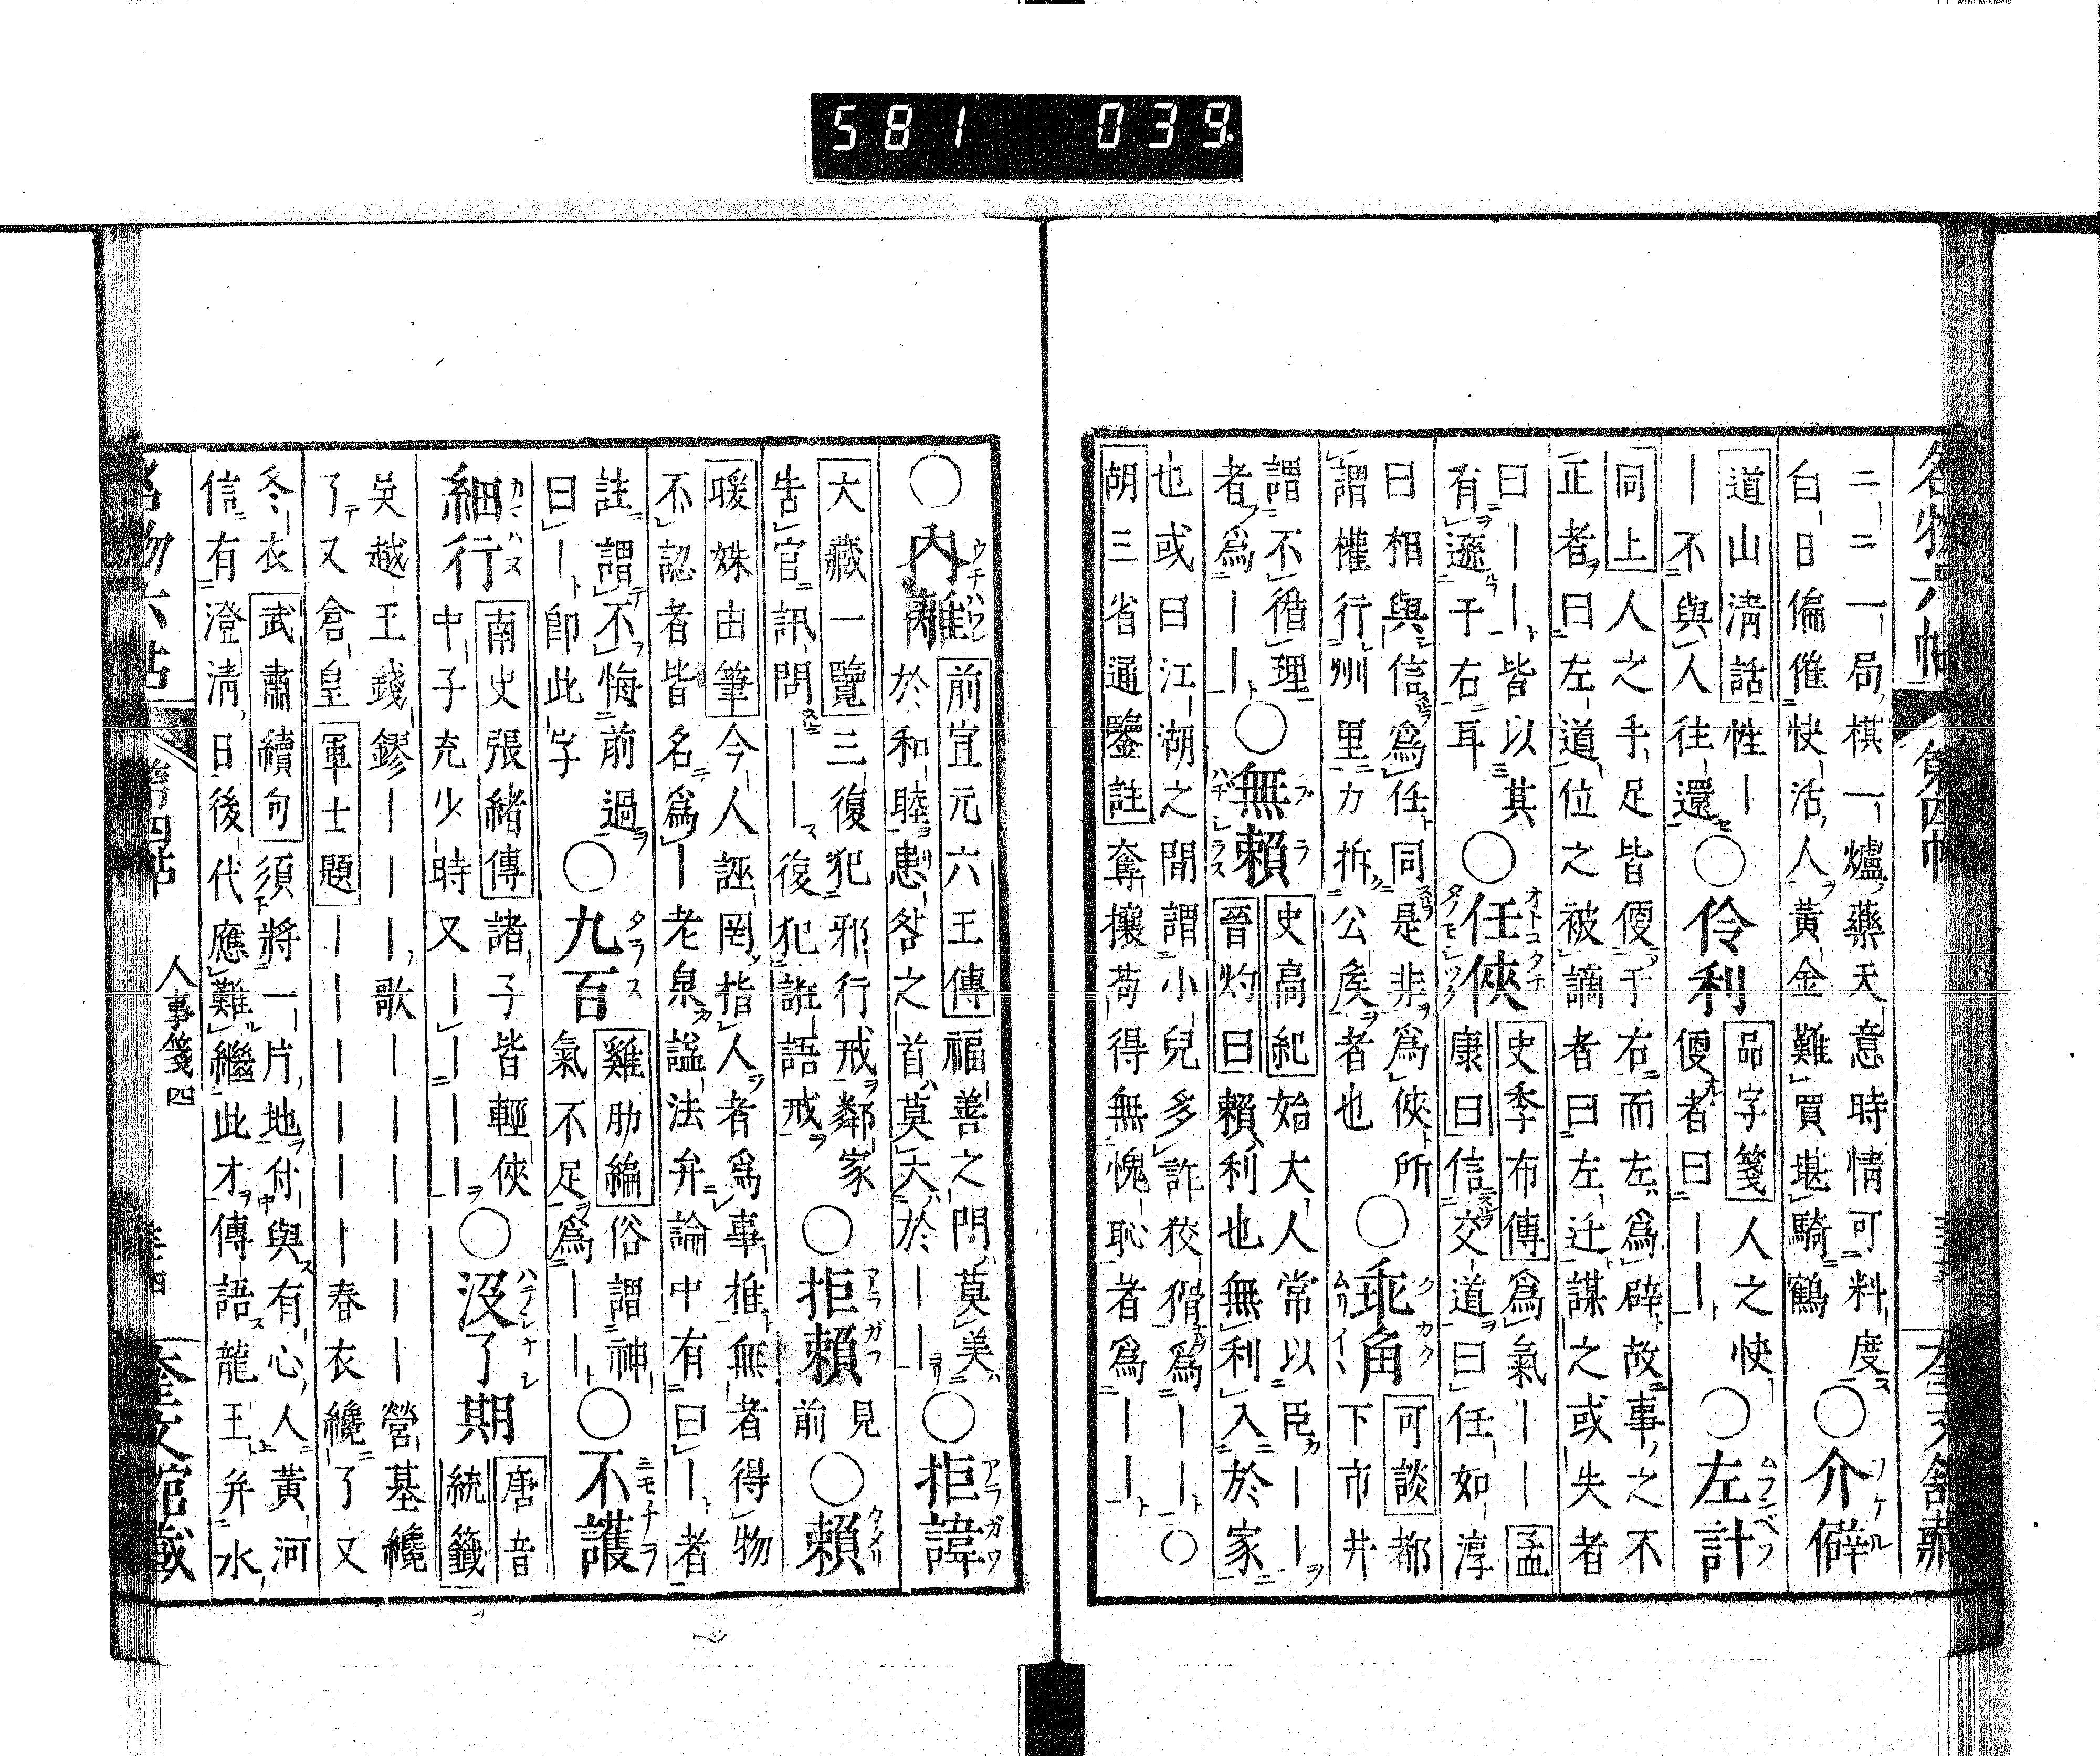 581 039
名物六帖 第四帖 奎文舘藏
二二一局棋一爐藥天意時情可料度○介僻
白日偏催快活人黃金難買堪騎鶴
道山淸話性一○伶利品字箋人之快○左計
一不與人往還 便者曰一一
同上人之手足皆便于右而左爲辟故事之不
正者曰左道位之被謫者曰左迁謀之或失者
曰一一皆以其○任俠史季布傳爲氣一一孟
有遜于右耳 康曰信交道曰任如淳
曰相與信爲任同是非爲俠所○乖角可談都
謂權行州里力折公矦者也 下市井
謂不循理○無賴史高紀始大人常以臣一一
者爲一一 晉灼曰賴利也無利入於家
也或曰江湖之間謂小兒多詐狡猾爲一一○
胡三省通鑒註奪攘苟得無愧恥者爲一一
○內離前宜元六王傳福善之門莫美○拒諱
於和睦患咎之首莫大於一一
大藏一覽三復犯邪行戒鄰家○拒賴見前○賴
告官訊問一一復犯誑語戒
暖姝由筆今人誣罔指人者爲事推無者得物
不認者皆名爲一老泉諡法弁論中有曰一者
註謂不悔前過○九百雞肋編俗謂神○不護
曰一卽此字 氣不足爲一一
細行南史張緒傳諸子皆輕俠○沒了期唐音統籤
中子充少時又一一一一
吳越王錢鏐一一一歌一一一一一一營基纔
了又倉皇軍士題一一一一一一春衣纔了又
冬衣武肅續句須將一片地付與有心人黃河
信有澄淸日後代應難繼此才傳語龍王弁水
名物六帖 第四帖 人事箋四 奎文館藏